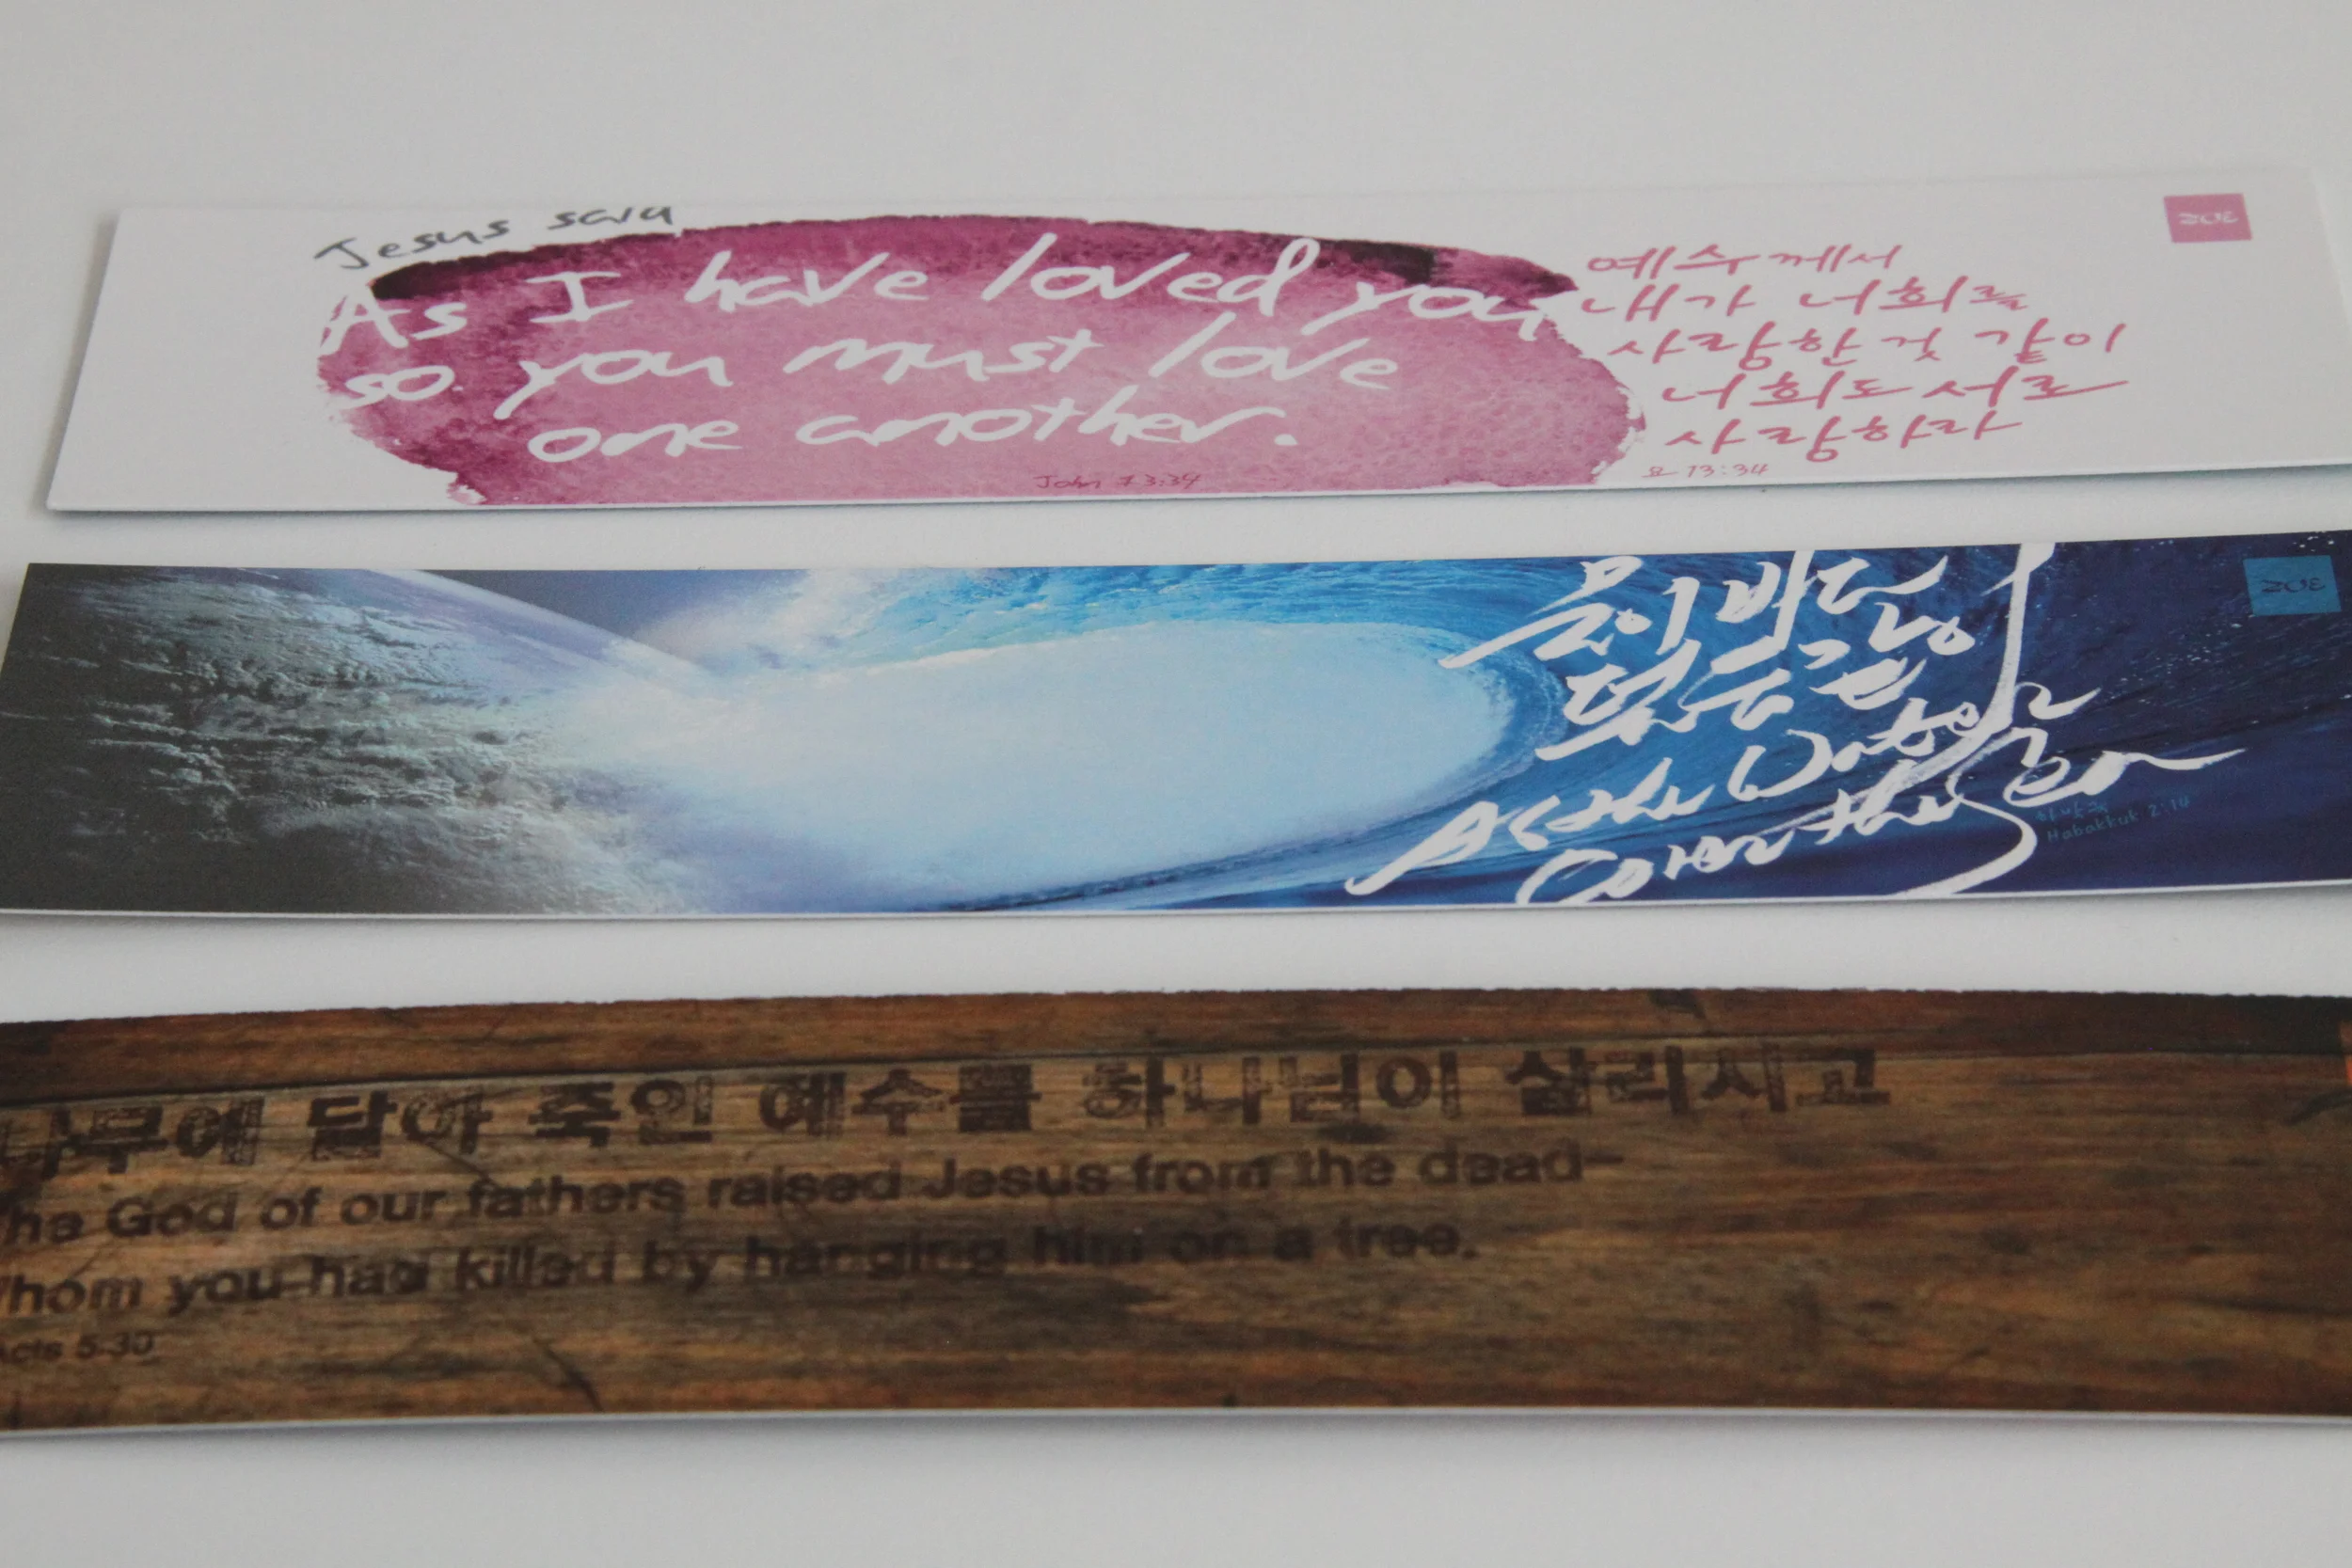 Jesus said
As I have loved you
so you must love
one another.
John 13:34
예수께서
내가 너희를
사랑한 것 같이
너희도 서로
사랑하라
요 13:34
ZOE
물이 바다
덮음 같이
As the Water
Cover the Sea
Habakkuk 2:14
ZOE
나무에 달아 죽인 예수를 하나님이 살리시고
he God of our fathers raised Jesus from the dead-
hom you had killed by hanging him on a tree.
Acts 5:30